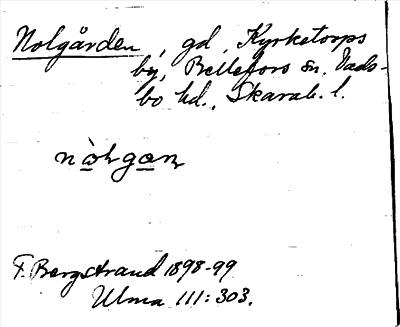 Nolgården, gd, Kyrketorps
by, Bellefors sn, Vads-
bo hd., Skarab. l.
F. Bergstrand 1898-99
Ulma 111:303.